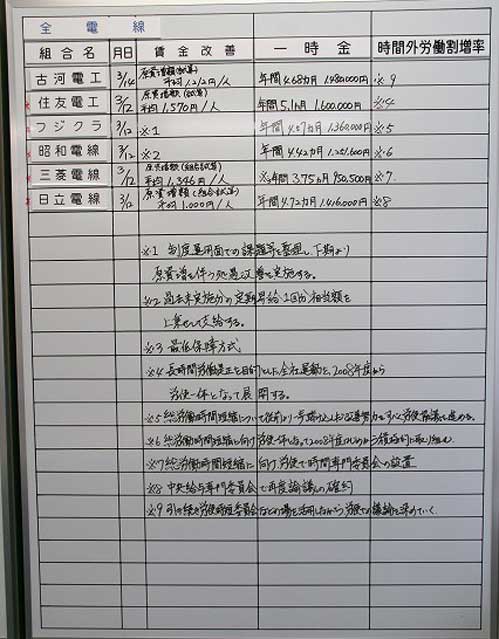 全電線
組合名 月日 賃金改善 一時金 時間外労働割増率
古河電工 3/14 原資増額(試算) 平均1,212円/人 年間4.68カ月 1,480,000円 ※9
住友電工 3/12 原資増額(試算) 平均1,570円/人 年間5.1カ月 1,600,000円 ※4
フジクラ 3/12 ※1 年間4.57カ月 1,360,000円 ※5
昭和電線 3/12 ※2 年間4.42カ月 1,251,600円 ※6
三菱電線 3/12 原資増額(組合試算) 平均1,346円/人 ※3年間3.75カ月 950,500円 ※7
日立電線 3/12 原資増額(組合試算) 平均1,000円/人 年間4.72カ月 1,416,000円 ※8
※1 制度運用面での課題等を整理し、下期より
原資増を伴う処遇改善を実施する。
※2 過去未実施分の定期昇給1回分相当額を
上乗せして支給する。
※3 最低保障方式
※4 長時間労働是正を目的とした全社運動を、2008年度から
労使一体となって展開する。
※5 総労働時間短縮について従前より一歩踏み込んだ改善努力をすべく労使論議を進める。
※6 総労働時間短縮に向け労使一体になって2008年度はじめから積極的に取り組む。
※7 総労働時間短縮に向け、労使で時間専門委員会の設置
※8 中央給与専門委員会で再度論議の確約
※9 引き続き労使時短委員会などの場を活用しながら、労使での議論を深めていく。